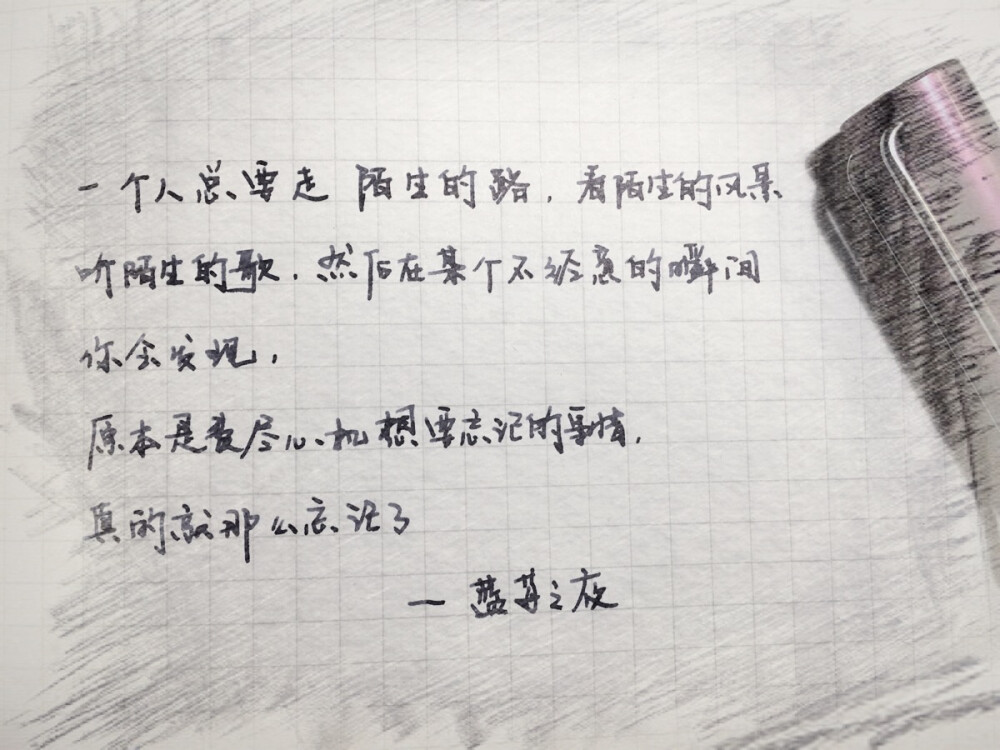 一个人总要走 陌生的路，看陌生的风景
听陌生的歌，然后在某个不经意的瞬间
你会发现，
原本是费尽心机想要忘记的事情，
真的就那么忘记了
— 蓝莓之夜